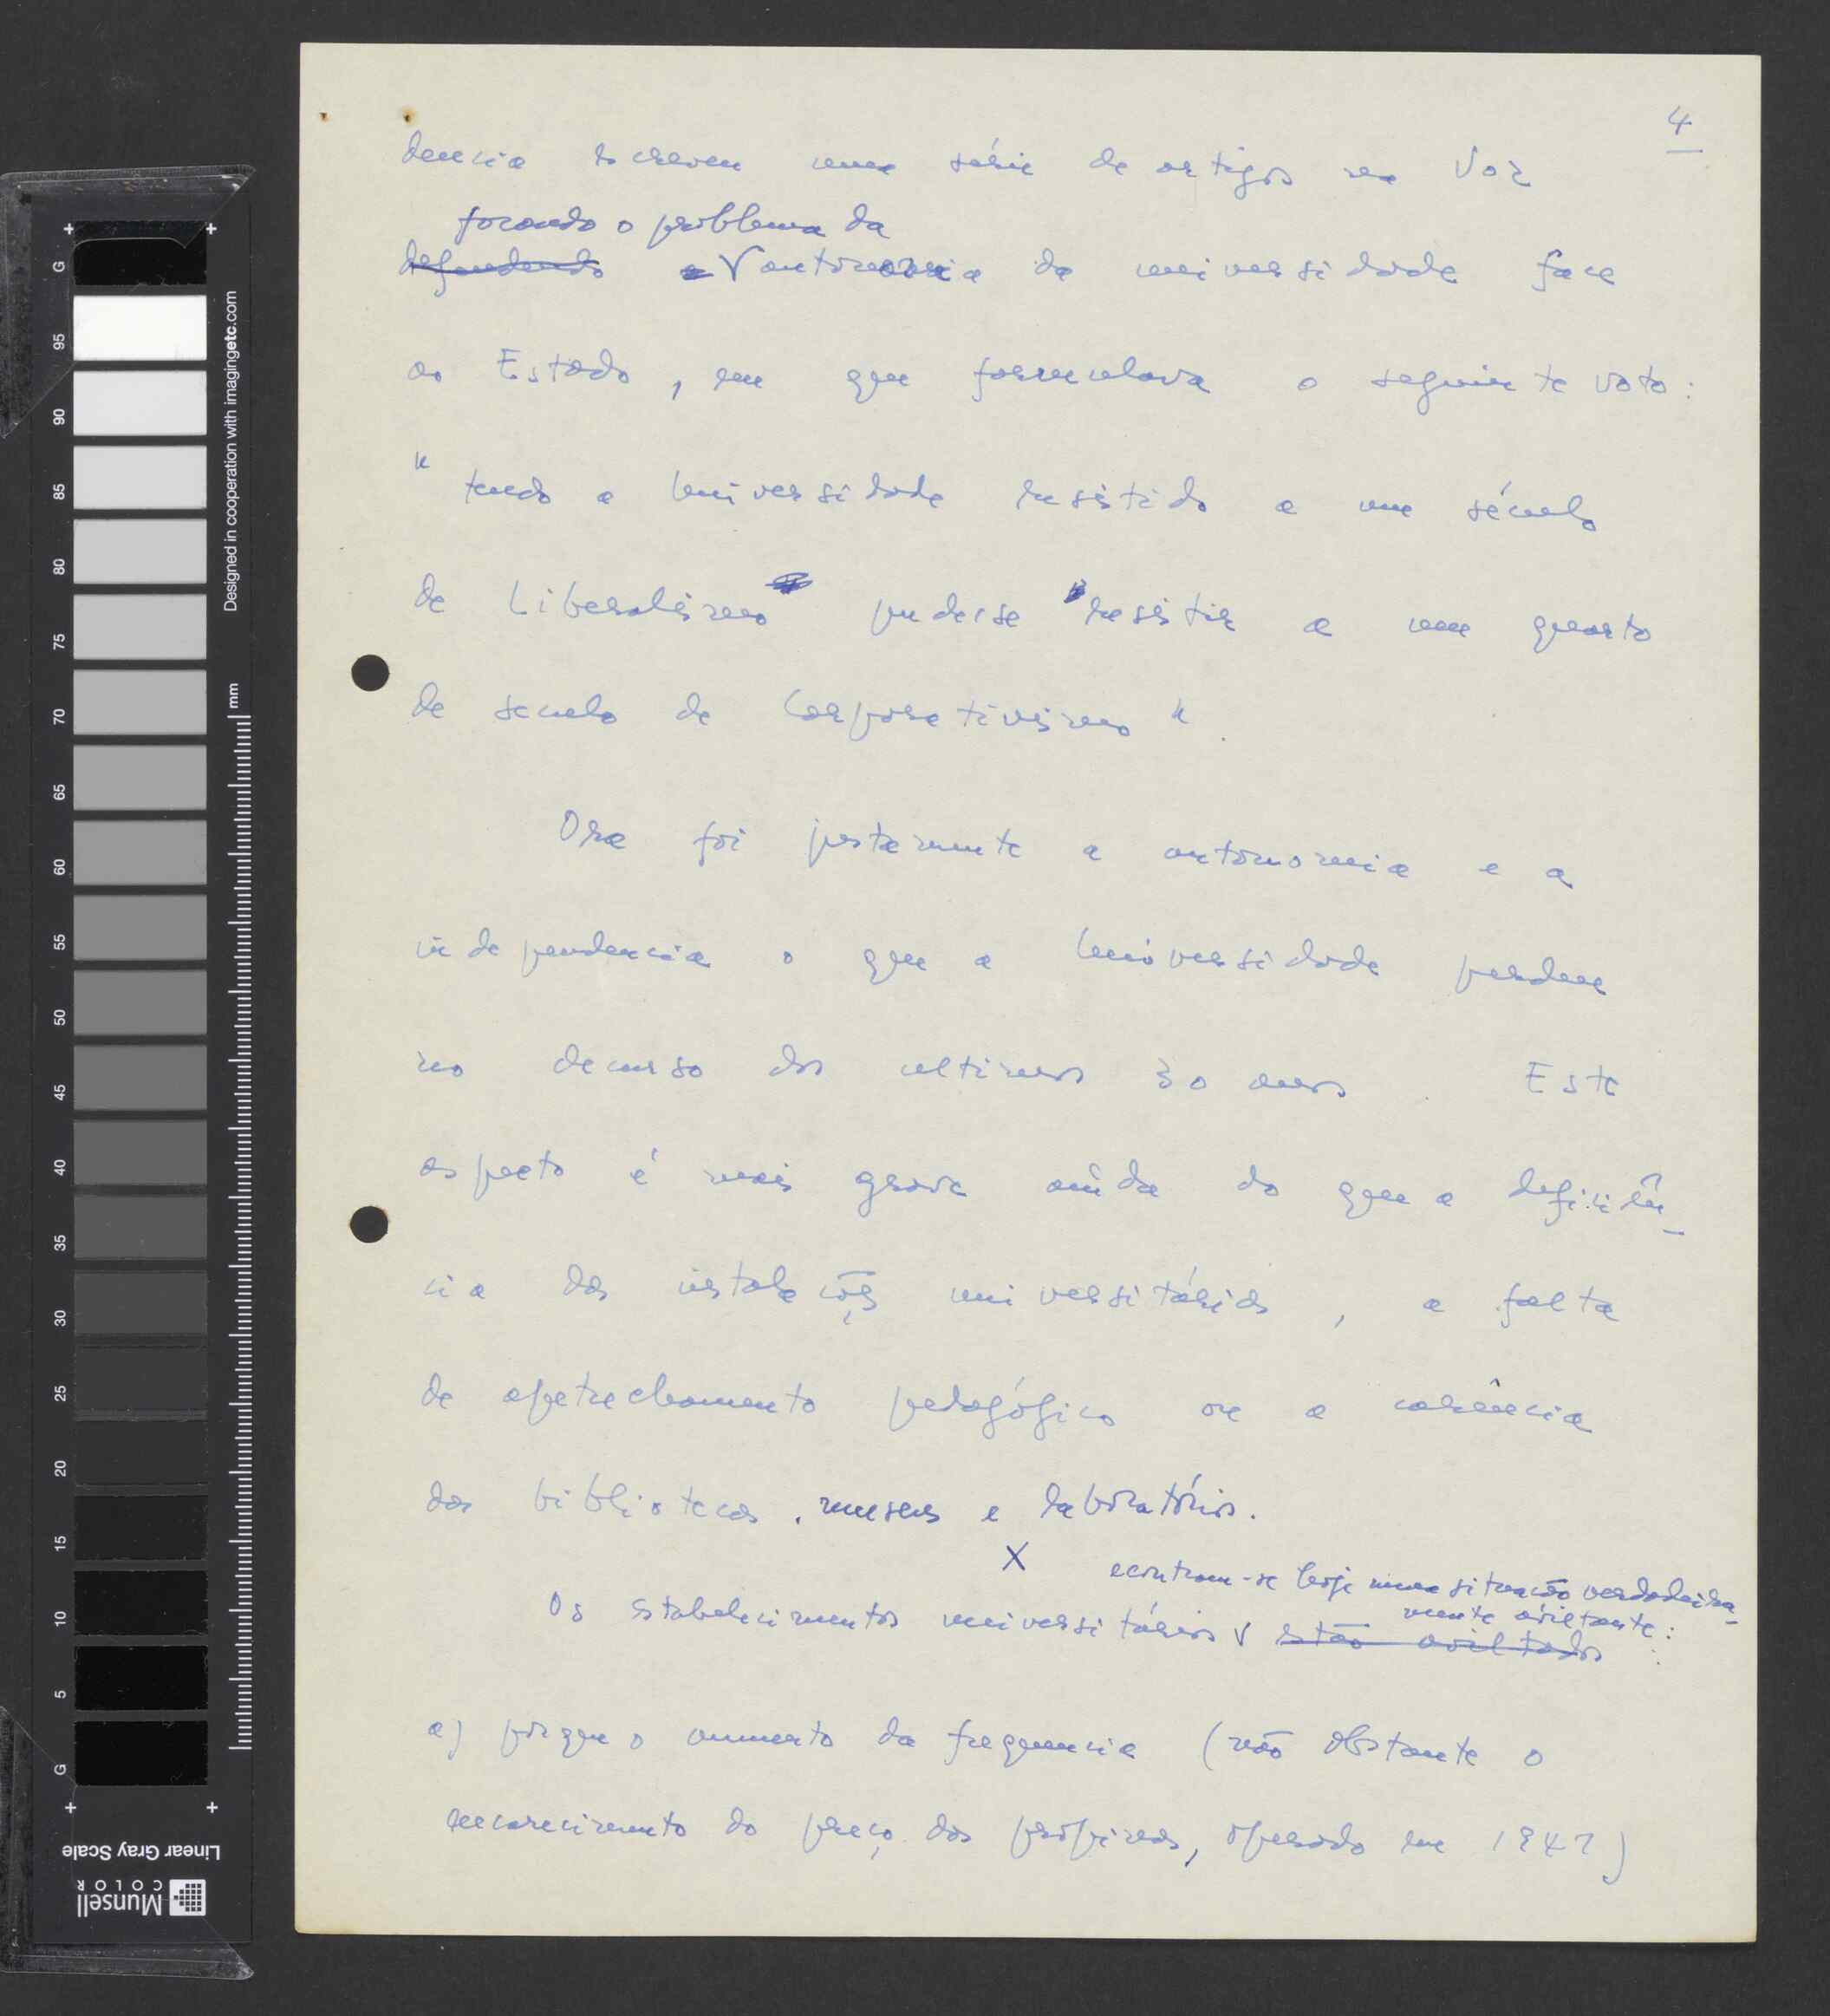 4
dencia escreveu uma série de artigos na Voz
focando o problema da
defendendo a V autonomia da universidade face
ao Estado, em que formulava o seguinte voto:
" tendo a Universidade resistido a um século
de Liberalismo pudesse resistir a um quarto
de seculo de Corporativismo ".
Ora foi justamente a autonomia e a
independencia o que a Universidade perdeu
no decurso dos ultimos 30 anos. Este
aspecto é mais grave ainda do que a deficiên-
cia das instalações universitárias, a falta
de apetrechamento pedagógico ou a carência
das bibliotecas, museus e laboratórios.
X econtram-se hoje numa situação verdadeira-
mente aviltante:
Os estabelecimentos universitários V estão aviltados:
a) porque o aumento da frequencia (não obstante o
encarecimento do preço das propinas, operado em 1947)
G 95 90 85 80 75 70 65 60 55 50 45 40 35 30 25 20 15 10 5 G
Designed in cooperation with imagingetc.com
mm
Linear Gray Scale
Munsell
COLOR